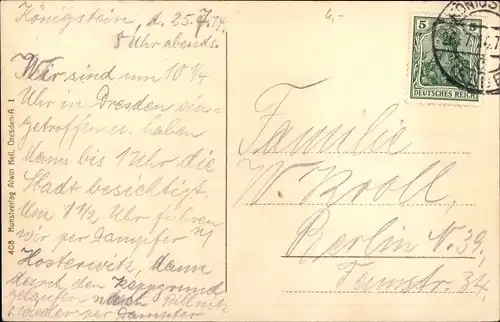 Königstein, d. 25.7.14.
8 Uhr abends.
Wir sind um 10 1/4
Uhr in Dresden ein-
getroffen u. haben
dann bis 1 Uhr die
Stadt besichtigt.
Um 1 1/2 Uhr fuhren
wir per Dampfer n/
Hosterwitz, dann
durch den Keppgrund
gelaufen nach Pillnitz
wieder per Dampfer
6,-
5 5
DEUTSCHES REICH
Familie
W. Kroll,
Berlin N. 39.
34.
408 Kunstverlag Alwin Keil, Dresden-A 1